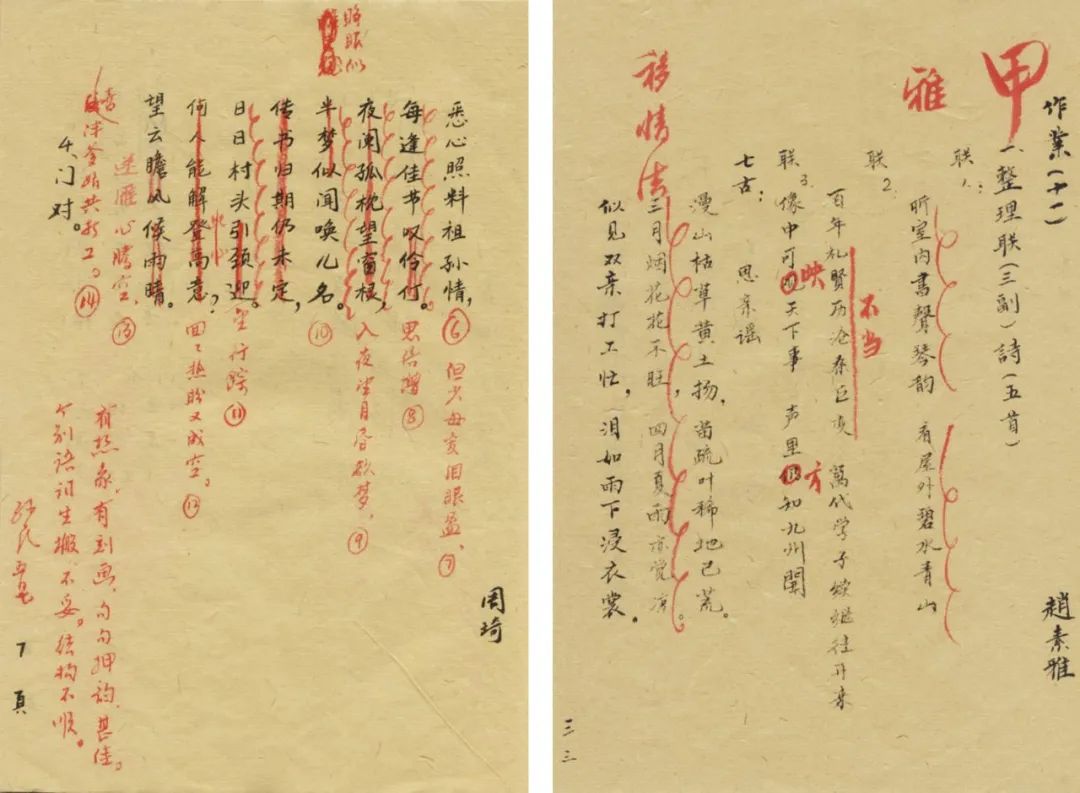 作業(十一) 趙素雅
一、整理联(三副)詩(五首)
甲
联1:
听室内書聲琴韵 看屋外碧水青山
雅
联2.
百年礼賢历沧桑巨变 萬代学子续继往开来
不当
联3. 像中可 天下事 声里 知九州聞
映
方
七古: 思亲谣
漫山枯草黄土扬,苗疏叶稀地已荒。
三月烟花花不旺,四月夏雨亦觉凉。
似见双亲打工忙,泪如雨下浸衣裳。
移情法
三三
周琦
悉心照料祖孙情,⑥ 但少母爱泪眼盈,⑦
每逢佳节叹伶仃。思倍增⑧
夜阑孤枕望窗棂,入夜望月昏欲梦,⑨
半梦似闻唤儿名。⑩
睁眼似
传书归期仍未定,
日日村头引颈迎。空行踪⑪
何人能解登高意?回回热盼又成空。⑫
望云瞻风候雨晴。
送雁心腾空,⑬
伴爹娘共打工。⑭
4、门对。
有想象,有刻画,句句押韵,甚佳。
个别语词生搬,不妥,结构不顺。
7 頁